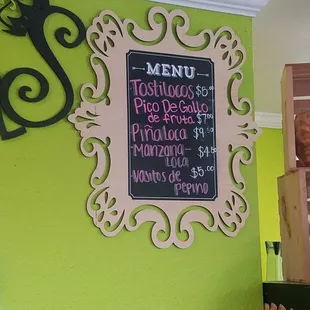 MENU
Tostilocos $5.00
Pico De Gallo
de fruta $7.00
Piñaloca $9.50
Manzana-
Loca $4.50
Vasitos de $5.00
pepino